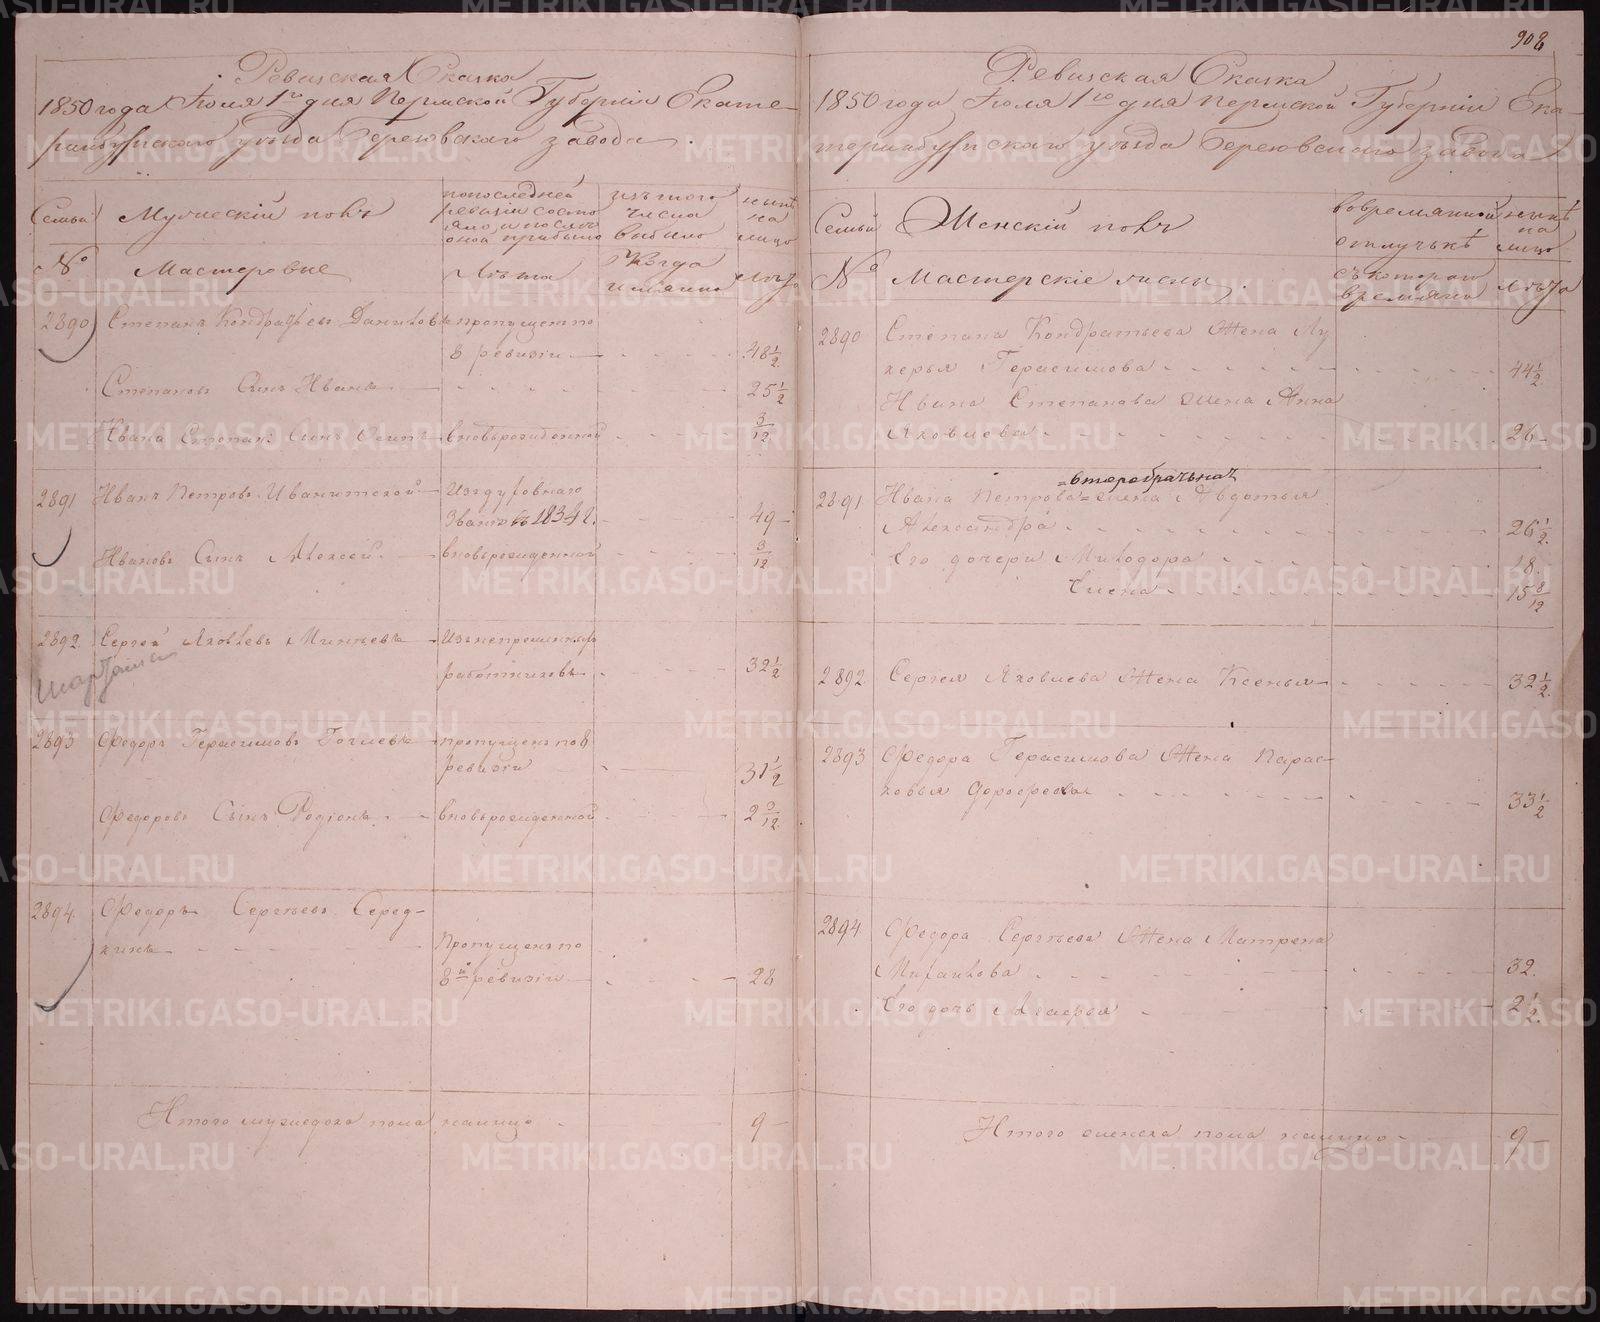 908
Ревизская Сказка
1850 года Июля 1го дня Пермской Губернии Екате-
ринбургскаго уезда Березовскаго завода.
Семьи
Мужескій полъ
попоследней
ревизіи состо
яло, и после
оной прибыло
изъ того
числа
выбыло
ныне
на
лицо
№
Мастеровые
Лѣта
Когда
имянно
лѣта
2890
Степанъ Кондратьевъ Даниловъ
пропущенъ по
8 ревизіи
48 1/2
Степановъ Сынъ Иванъ
25 1/2
Ивана Степан: Сынъ Осипъ
вновьрожденной
3/12
2891
Иванъ Петровъ Иванитской
Из духовнаго
Званія въ 1834 г.
49
Ивановъ Сынъ Алексей
вновьрожденной
3/12
2892
Сергей Яковлевъ Минеевъ
Изъ непременных
работниковъ
32 1/2
Шарташ
2893
Федоръ Герасимовъ
пропущенъ по 8
ревизіи
31 1/2
Федоровъ Сынъ Родіонъ
вновьрожденной
2 9/12
2894
Федоръ Сергеевъ Серед-
кинъ
Пропущенъ по
8й ревизіи
28
Итого мужескаго пола налицо
9
Ревизская Сказка
1850 года Июля 1го дня Пермской Губерніи Ека-
теринбургскаго уезда Березовскаго завода
Семьи
Женскій полъ
вовременной
отлучкѣ
нынѣ
на
лицо
№
Мастерскіе жены
съ котораго
времяни
лѣта
2890
Степана Кондратьева Жена Лу
керья Герасимова
44 1/2
Ивана Степанова жена Анна
Яковлева
26
=второбрачьная
2891
Ивана Петрова= жена Авдотья
Александра
26 1/2
Его дочери Милодора
18
Елена
15 8/12
2892
Сергея Яковлева Жена Ксенья
32 1/2
2893
Федора Герасимова Жена Парас-
ковья Дорофеева
33 1/2
2894
Федора Сергеева Жена Матрена
Михайлова
32
Его дочь Агафья
2 1/2
Итого женска пола налицо
9
METRIKI.GASO-URAL.RU